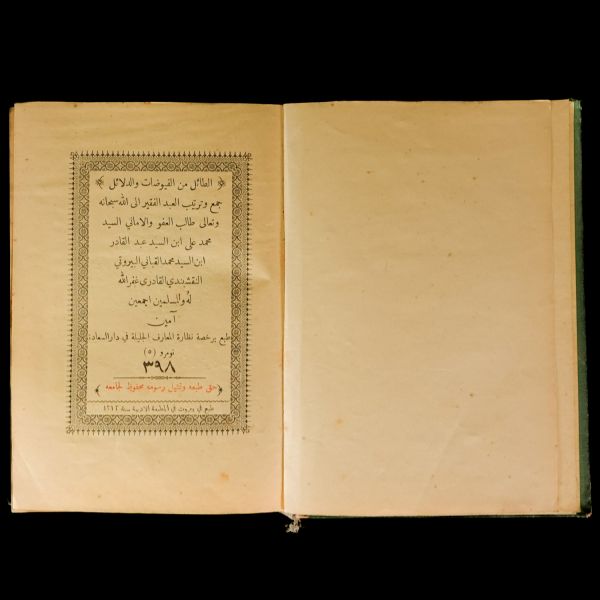 الطائل من الفيوضات والدلائل
جمع وترتيب العبد الفقير الى الله سبحانه
وتعالى طالب العفو والاماني السيد
محمد على ابن السيد عبد القادر
ابن السيد محمد القباني البيروتي
النقشبندي القادري غفر الله
له وللمسلمين اجمعين
آمين
طبع برخصة نظارة المعارف الجليلة في دار السعاده
نومرو (٥)
٣٩٨
حق طبعه وتمثيل رسومه محفوظ لجامعه
طبع في بيروت في المطبعة الادبية سنة